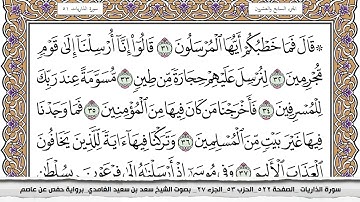 سورة الذاريات ٥١
الجزء السابع والعشرون
۞ قَالَ فَمَا خَطْبُكُمْ أَيُّهَا ٱلْمُرْسَلُونَ ٣١ قَالُوٓا۟ إِنَّآ أُرْسِلْنَآ إِلَىٰ قَوْمٍ
مُّجْرِمِينَ ٣٢ لِنُرْسِلَ عَلَيْهِمْ حِجَارَةً مِّن طِينٍ ٣٣ مُّسَوَّمَةً عِندَ رَبِّكَ
لِلْمُسْرِفِينَ ٣٤ فَأَخْرَجْنَا مَن كَانَ فِيهَا مِنَ ٱلْمُؤْمِنِينَ ٣٥ فَمَا وَجَدْنَا
فِيهَا غَيْرَ بَيْتٍ مِّنَ ٱلْمُسْلِمِينَ ٣٦ وَتَرَكْنَا فِيهَآ ءَايَةً لِّلَّذِينَ يَخَافُونَ
ٱلْعَذَابَ ٱلْأَلِيمَ ٣٧ وَفِى مُوسَىٰٓ إِذْ أَرْسَلْنَٰهُ إِلَىٰ فِرْعَوْنَ بِسُلْطَٰنٍ
سورة الذاريات _الصفحة ٥٢٢_الحزب ٥٣_الجزء ٢٧_ بصوت الشيخ سعد بن سعيد الغامدي_برواية حفص عن عاصم